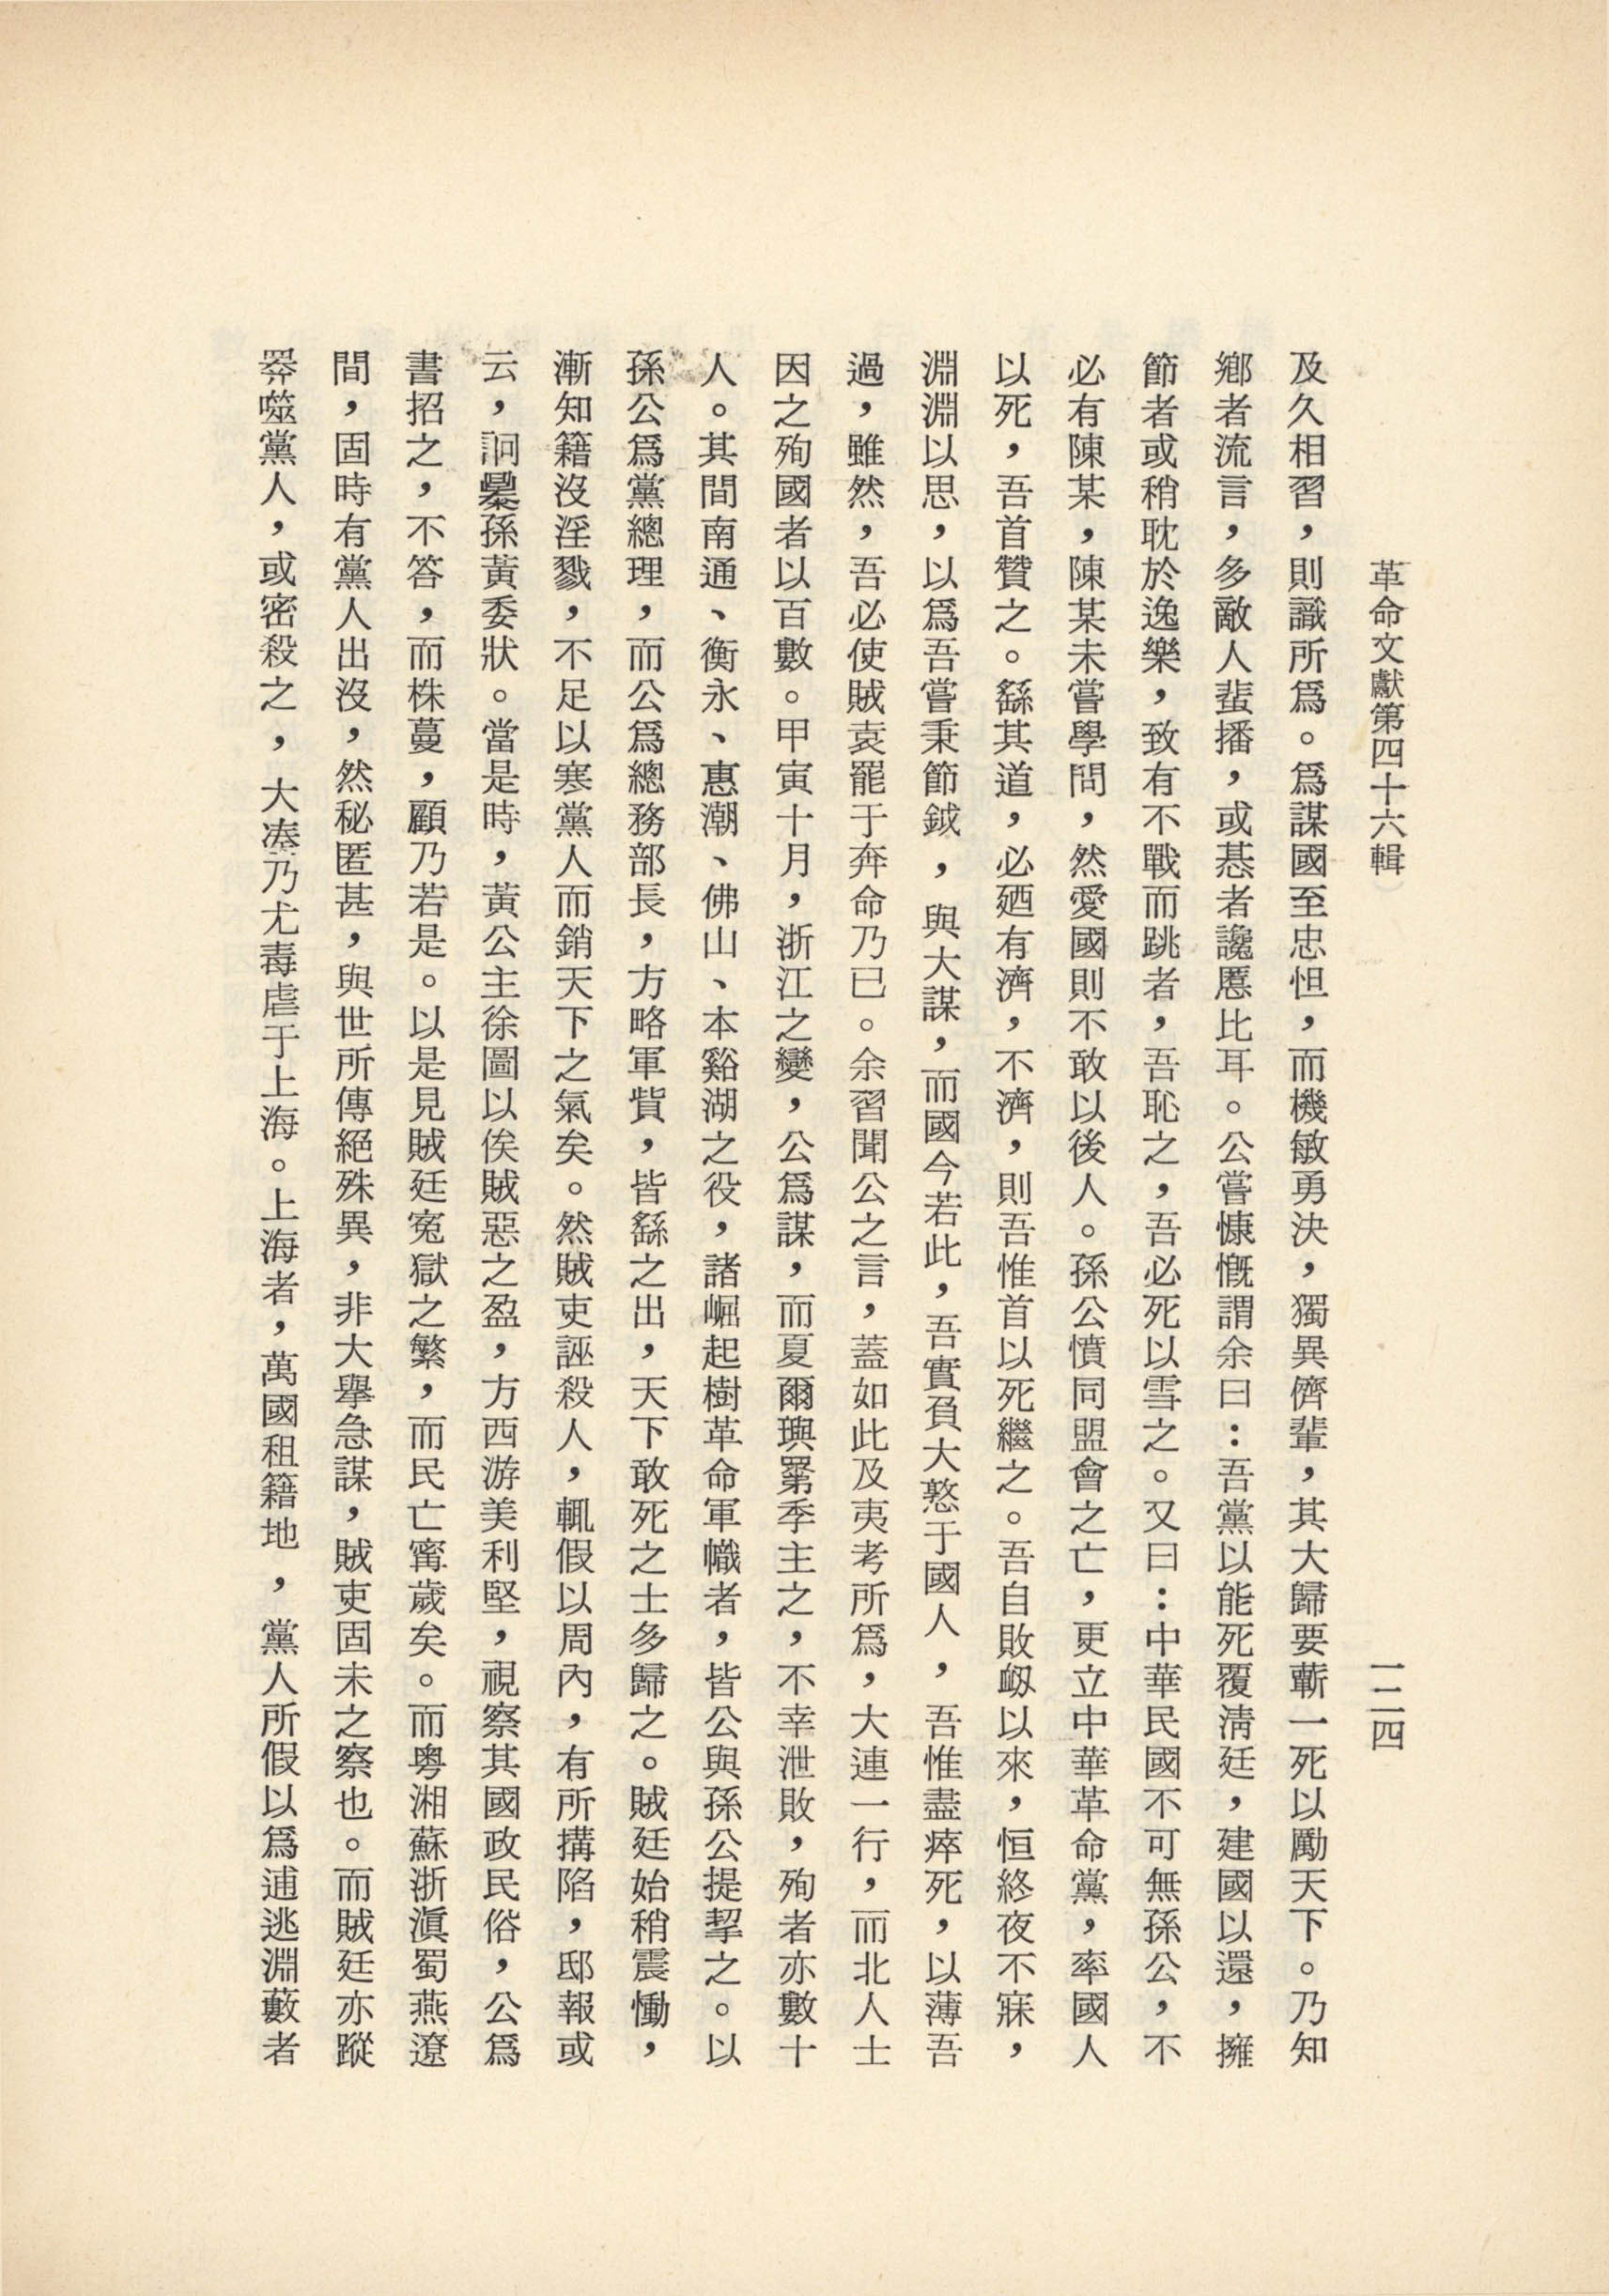 革命文獻第四十六輯
一二四
及久相習，則識所爲。爲謀國至忠怛，而機敏勇決，獨異儕輩，其大歸要蘄一死以勵天下。乃知
鄉者流言，多敵人蜚播，或惎者讒慝比耳。公嘗慷慨謂余曰：吾黨以能死覆淸廷，建國以還，擁
節者或稍耽於逸樂，致有不戰而跳者，吾恥之，吾必死以雪之。又曰：中華民國不可無孫公，不
必有陳某，陳某未嘗學問，然愛國則不敢以後人。孫公憤同盟會之亡，更立中華革命黨，率國人
以死，吾首贊之。繇其道，必廼有濟，不濟，則吾惟首以死繼之。吾自敗衂以來，恒終夜不寐，
淵淵以思，以爲吾嘗秉節鉞，與大謀，而國今若此，吾實負大憝于國人，吾惟盡瘁死，以薄吾
過，雖然，吾必使賊袁罷于奔命乃已。余習聞公之言，蓋如此及夷考所爲，大連一行，而北人士
因之殉國者以百數。甲寅十月，浙江之變，公爲謀，而夏爾璵羃季主之，不幸泄敗，殉者亦數十
人。其間南通、衡永、惠潮、佛山、本谿湖之役，諸崛起樹革命軍幟者，皆公與孫公提挈之。以
孫公爲黨總理，而公爲總務部長，方略軍貲，皆繇之出，天下敢死之士多歸之。賊廷始稍震慟，
漸知籍沒淫戮，不足以寒黨人而銷天下之氣矣。然賊吏誣殺人，輒假以周內，有所搆陷，邸報或
云，詗㬥孫黃委狀。當是時，黃公主徐圖以俟賊惡之盈，方西游美利堅，視察其國政民俗，公爲
書招之，不答，而株蔓，顧乃若是。以是見賊廷寃獄之繁，而民亡寗歲矣。而粵湘蘇浙滇蜀燕遼
間，固時有黨人出沒，然秘匿甚，與世所傳絕殊異，非大擧急謀，賊吏固未之察也。而賊廷亦蹤
噬黨人，或密殺之，大湊乃尤毒虐于上海。上海者，萬國租籍地，黨人所假以爲逋逃淵藪者